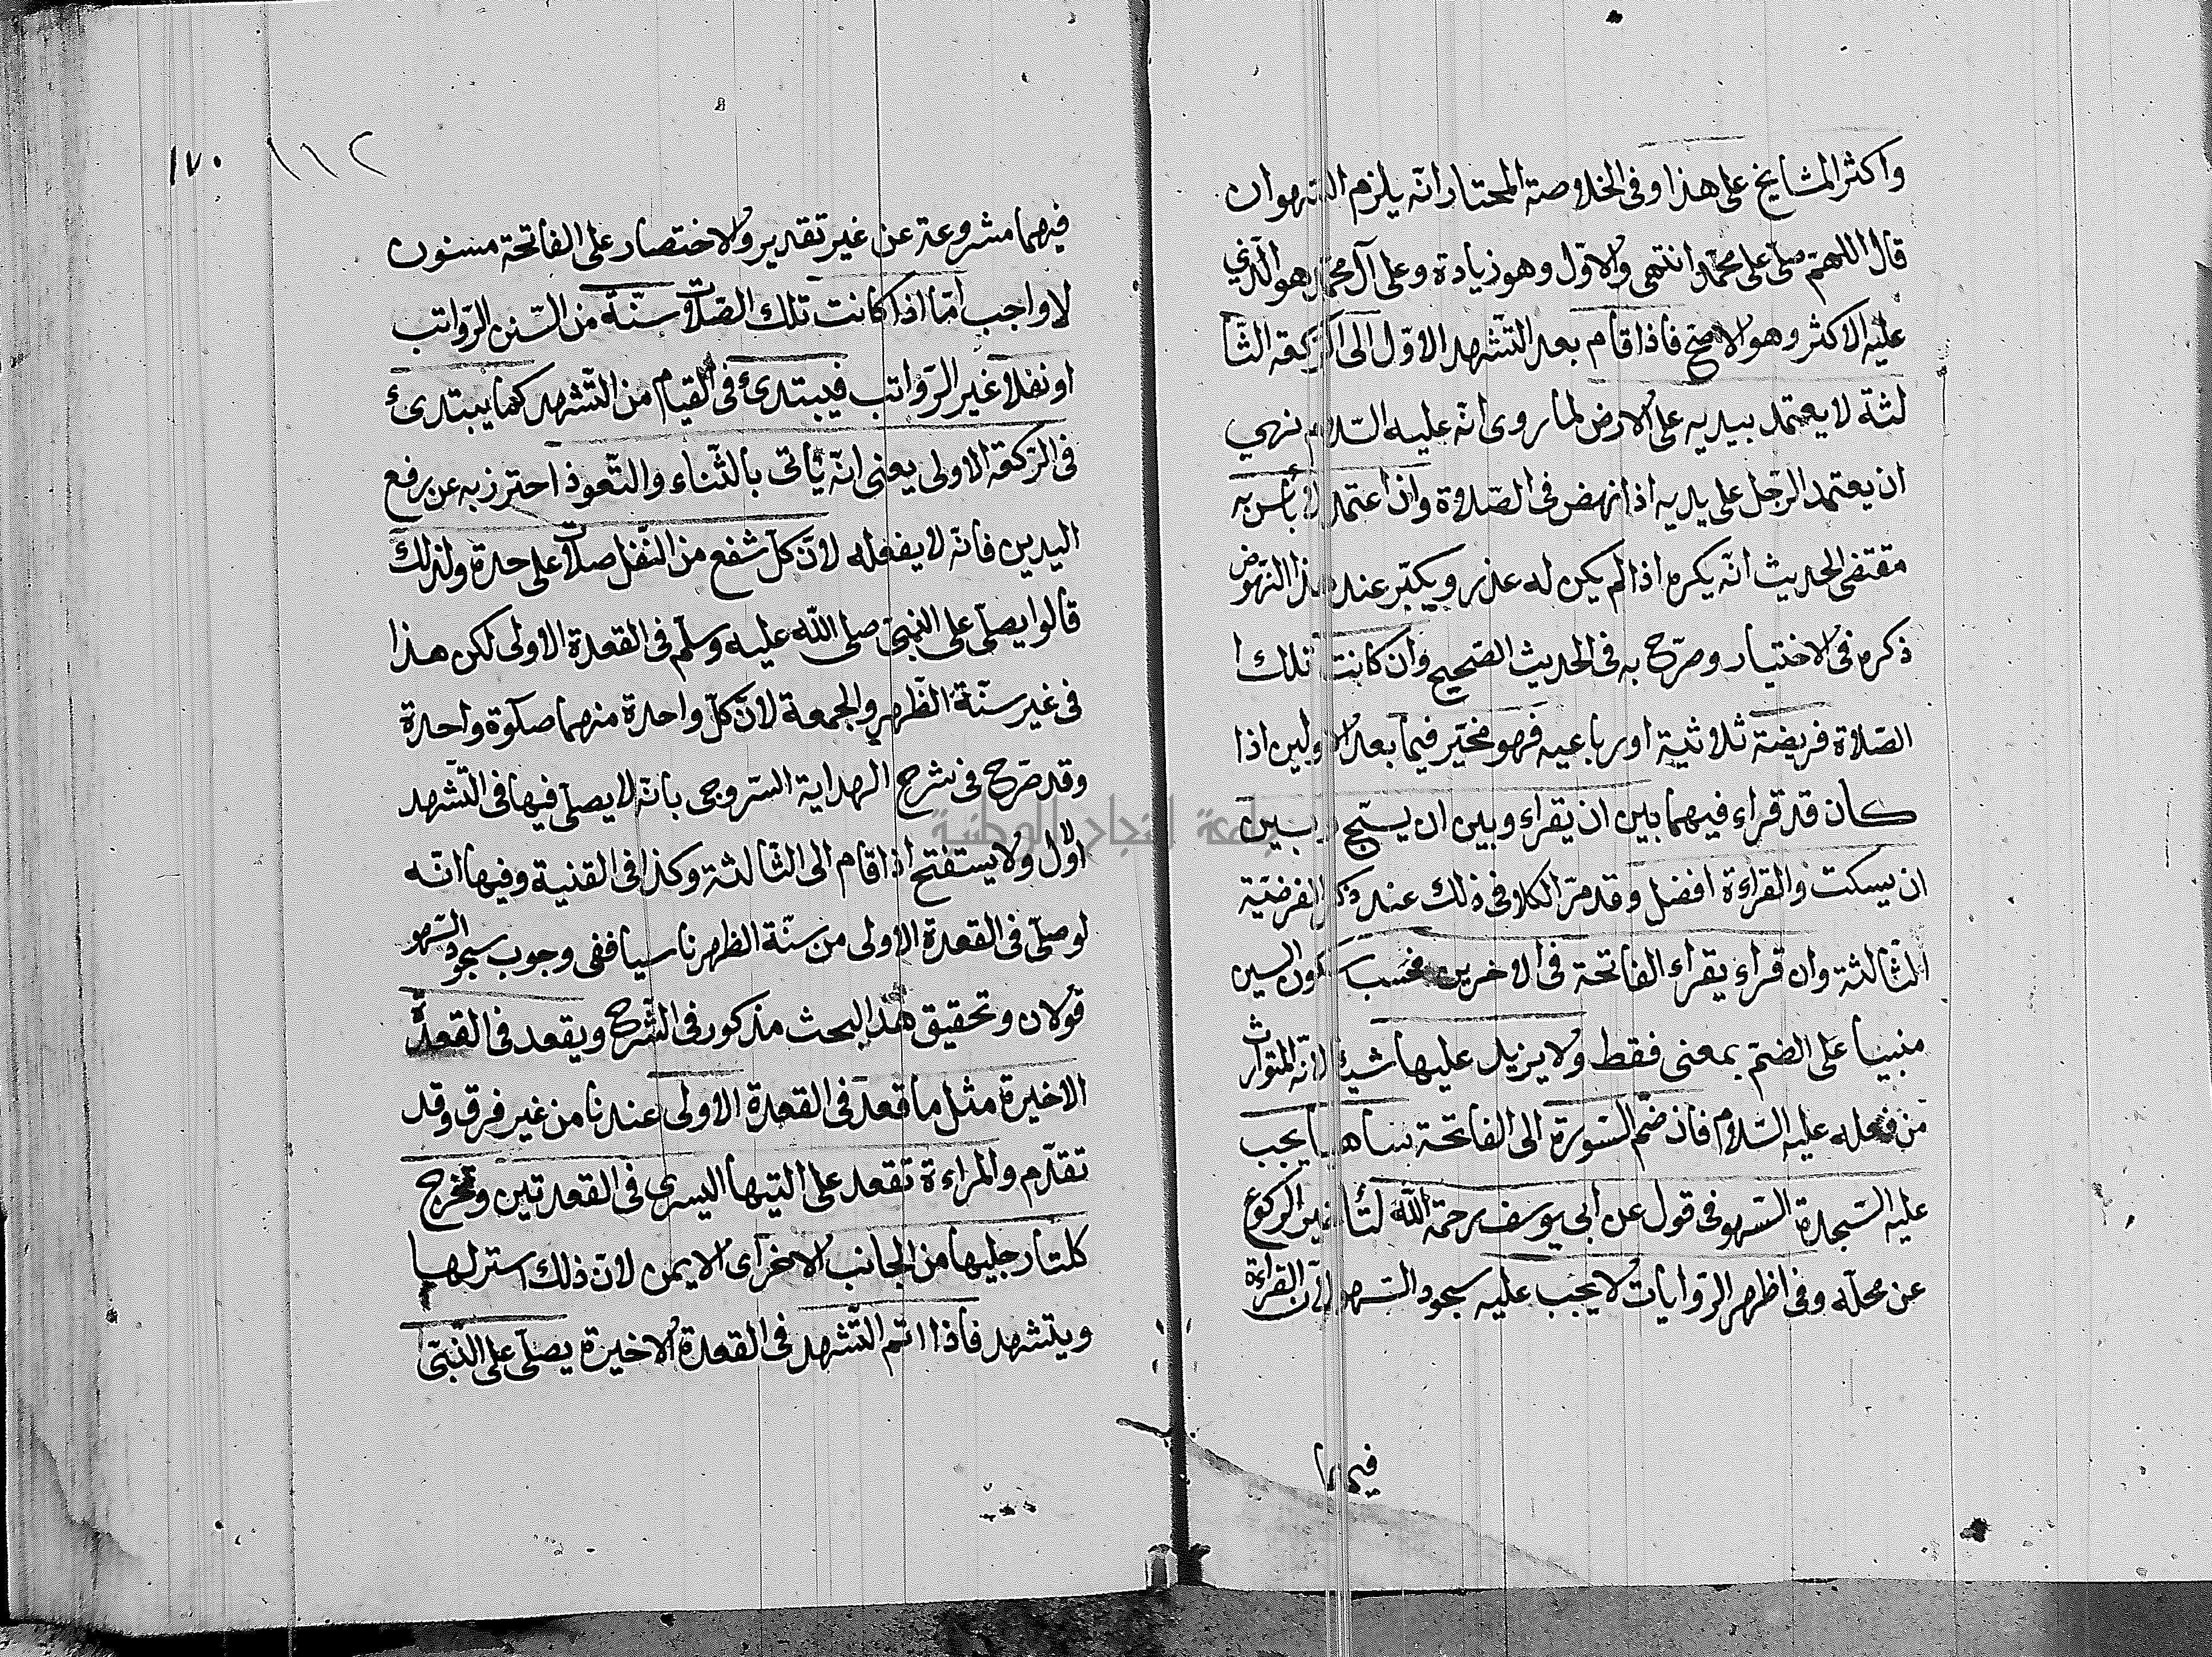 واكثر المشايخ على هذا وفى الخلاصة المختار انّه يلزم السهو ان
قال اللهمّ صلّ على محمّد انتهى والاوّل وهو زيادة وعلى آل محمّد هو الّذى
عليه الاكثر وهو الاصحّ فاذا قام بعد التّشهد الاوّل الى الرّكعة الثّا
لثة لا يعتمد بيديه على الارض لما روى انّه عليه السّلام نهى
ان يعتمد الرّجل على يديه اذا نهض فى الصّلاوة وان اعتمد لا بأس به
مقتضى الحديث انّه يكره اذا لم يكن له عذر ويكبّر عند هذا النّهوض
ذكره فى الاختيار وصرّح به فى الحديث الصّحيح وان كانت تلك ا
الصّلاة فريضة ثلاثية او رباعيه فهو مخيّر فيما بعد الاوليين اذا
كان قد قراء فيهما بين ان يقراء وبين ان يسبّح وبين
ان يسكت والقراءة افضل وقد مرّ الكلا فى ذلك عند ذكر الفرضيّة
الثّالثة وان قراء يقراء الفاتحة فى الاخرين فحسب بسكون السين
مبنيا على الضمّ بمعنى فقط ولا يزيد عليها شيئا لانّه المتوارث
من فعله عليه السّلام فان ضمّ السّورة الى الفاتحة ساهيا يجب
عليه السّجدة السّهو فى قول عن ابى يوسف رحمة اللّه لتأخير الركوع
عن محلّه وفى اظهر الرّوايات لا يجب عليه سجود السّهو لانّ القراءة
فيهما
١١٢
١٧٠
فيهما مشروعة عن غير تقدير والاختصار على الفاتحة مسنون
لا واجب امّا اذا كانت تلك الصّلاة سنّة من السّنن الرّواتب
او نفلا غير الرّواتب فيبتدئ فى القيام من التّشهد كما يبتدئ
فى الرّكعة الاولى يعنى انّه يأتى بالثّناء والتّعوذ احترز به عن رفع
اليدين فانّه لا يفعله لانّ كلّ شفع من النّفل صلاة على حدة ولذلك
قالوا يصلّى على النّبىّ صلى اللّه عليه وسلّم فى القعدة الاولى لكن هذا
فى غير سنّة الظّهر والجمعة لانّ كلّ واحدة منهما صلوة واحدة
وقد صرّح فى شرح الهداية السّروجى بانّه لا يصلّى فيها فى التّشهد
اوّل ولا يستفتح اذا قام الى الثّالثة وكذا فى القنية وفيها انّه
لو صلّى فى القعدة الاولى من سنّة الظهر ناسيا ففى وجوب سجود السّهو
قولان وتحقيق هذا البحث مذكور فى الشّرح ويقعد فى القعدة
الاخيرة مثل ما قعد فى القعدة الاولى عندنا من غير فرق وقد
تقدّم والمراءة تقعد على اليتها اليسرى فى القعدتين وتخرج
كلتا رجليها من الجانب الاخر اى الايمن لانّ ذلك استر لها
ويتشهد فاذا اتمّ التّشهد فى القعدة الاخيرة يصلّى على النّبىّ
جامعة النجاح الوطنية